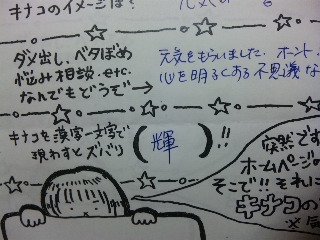 キナコのイメージは？
ダメ出し、ベタぼめ
悩み相談.etc.
なんでもどうぞ→
元気をもらいました.ホント、
心を明るくする不思議な
キナコを漢字一文字で
現わすとズバリ
（輝）!!
突然です
ホームページ
そこで!!それに
キナコの